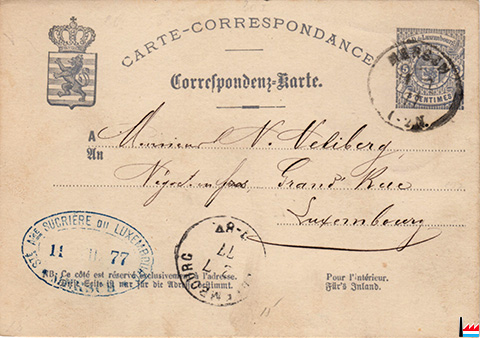 CARTE-CORRESPONDANCE
Correspondenz-Karte.
CENTIMES
MERSCH
1-2N.
A
An
Monsieur N. Veliberg,
Négociant Grand Rue
Luxembourg
STÉ AME SUCRIÈRE DU LUXEMBOURG
11 77
7-8V
7
77
LUXEMBOURG
NB. Ce côté est réservé exclusivement à l'adresse.
Diese Seite ist nur für die Adresse bestimmt.
Pour l'intérieur.
Für's Inland.